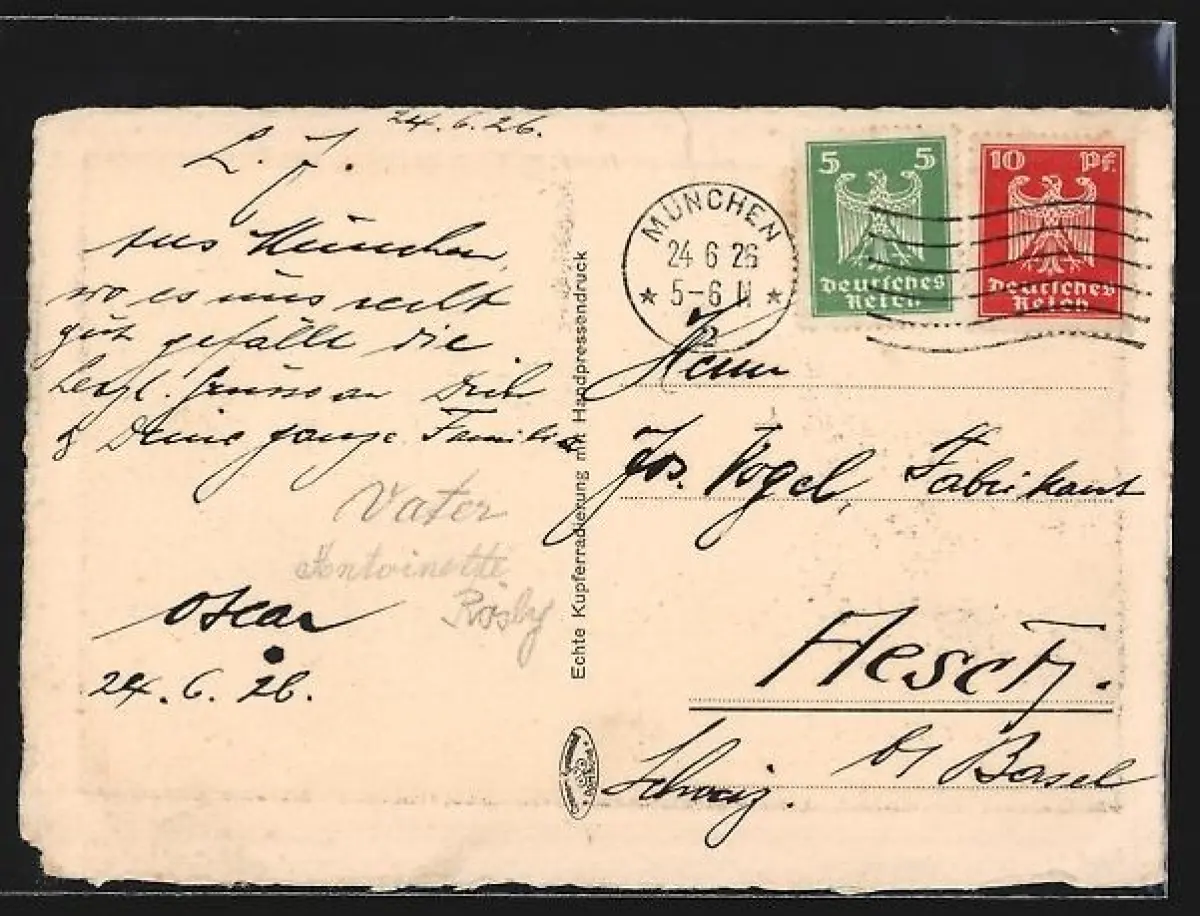 24.6.26.
L. J.
aus München,
wo es uns recht
gut gefällt die
herzl. Grüsse an Dich
& Deine ganze Familie
Vater
Antoinette
Rösly
Oscar
24. 6. 26.
Echte Kupferradierung mit Handpressendruck
MÜNCHEN
24 6 26
5-6 N
2
5 5
Deutsches
Reich
10 Pf.
Deutsches
Reich
Herrn
Jos. Vogel, Fabrikant
Aesch.
b/ Basel
Schweiz.